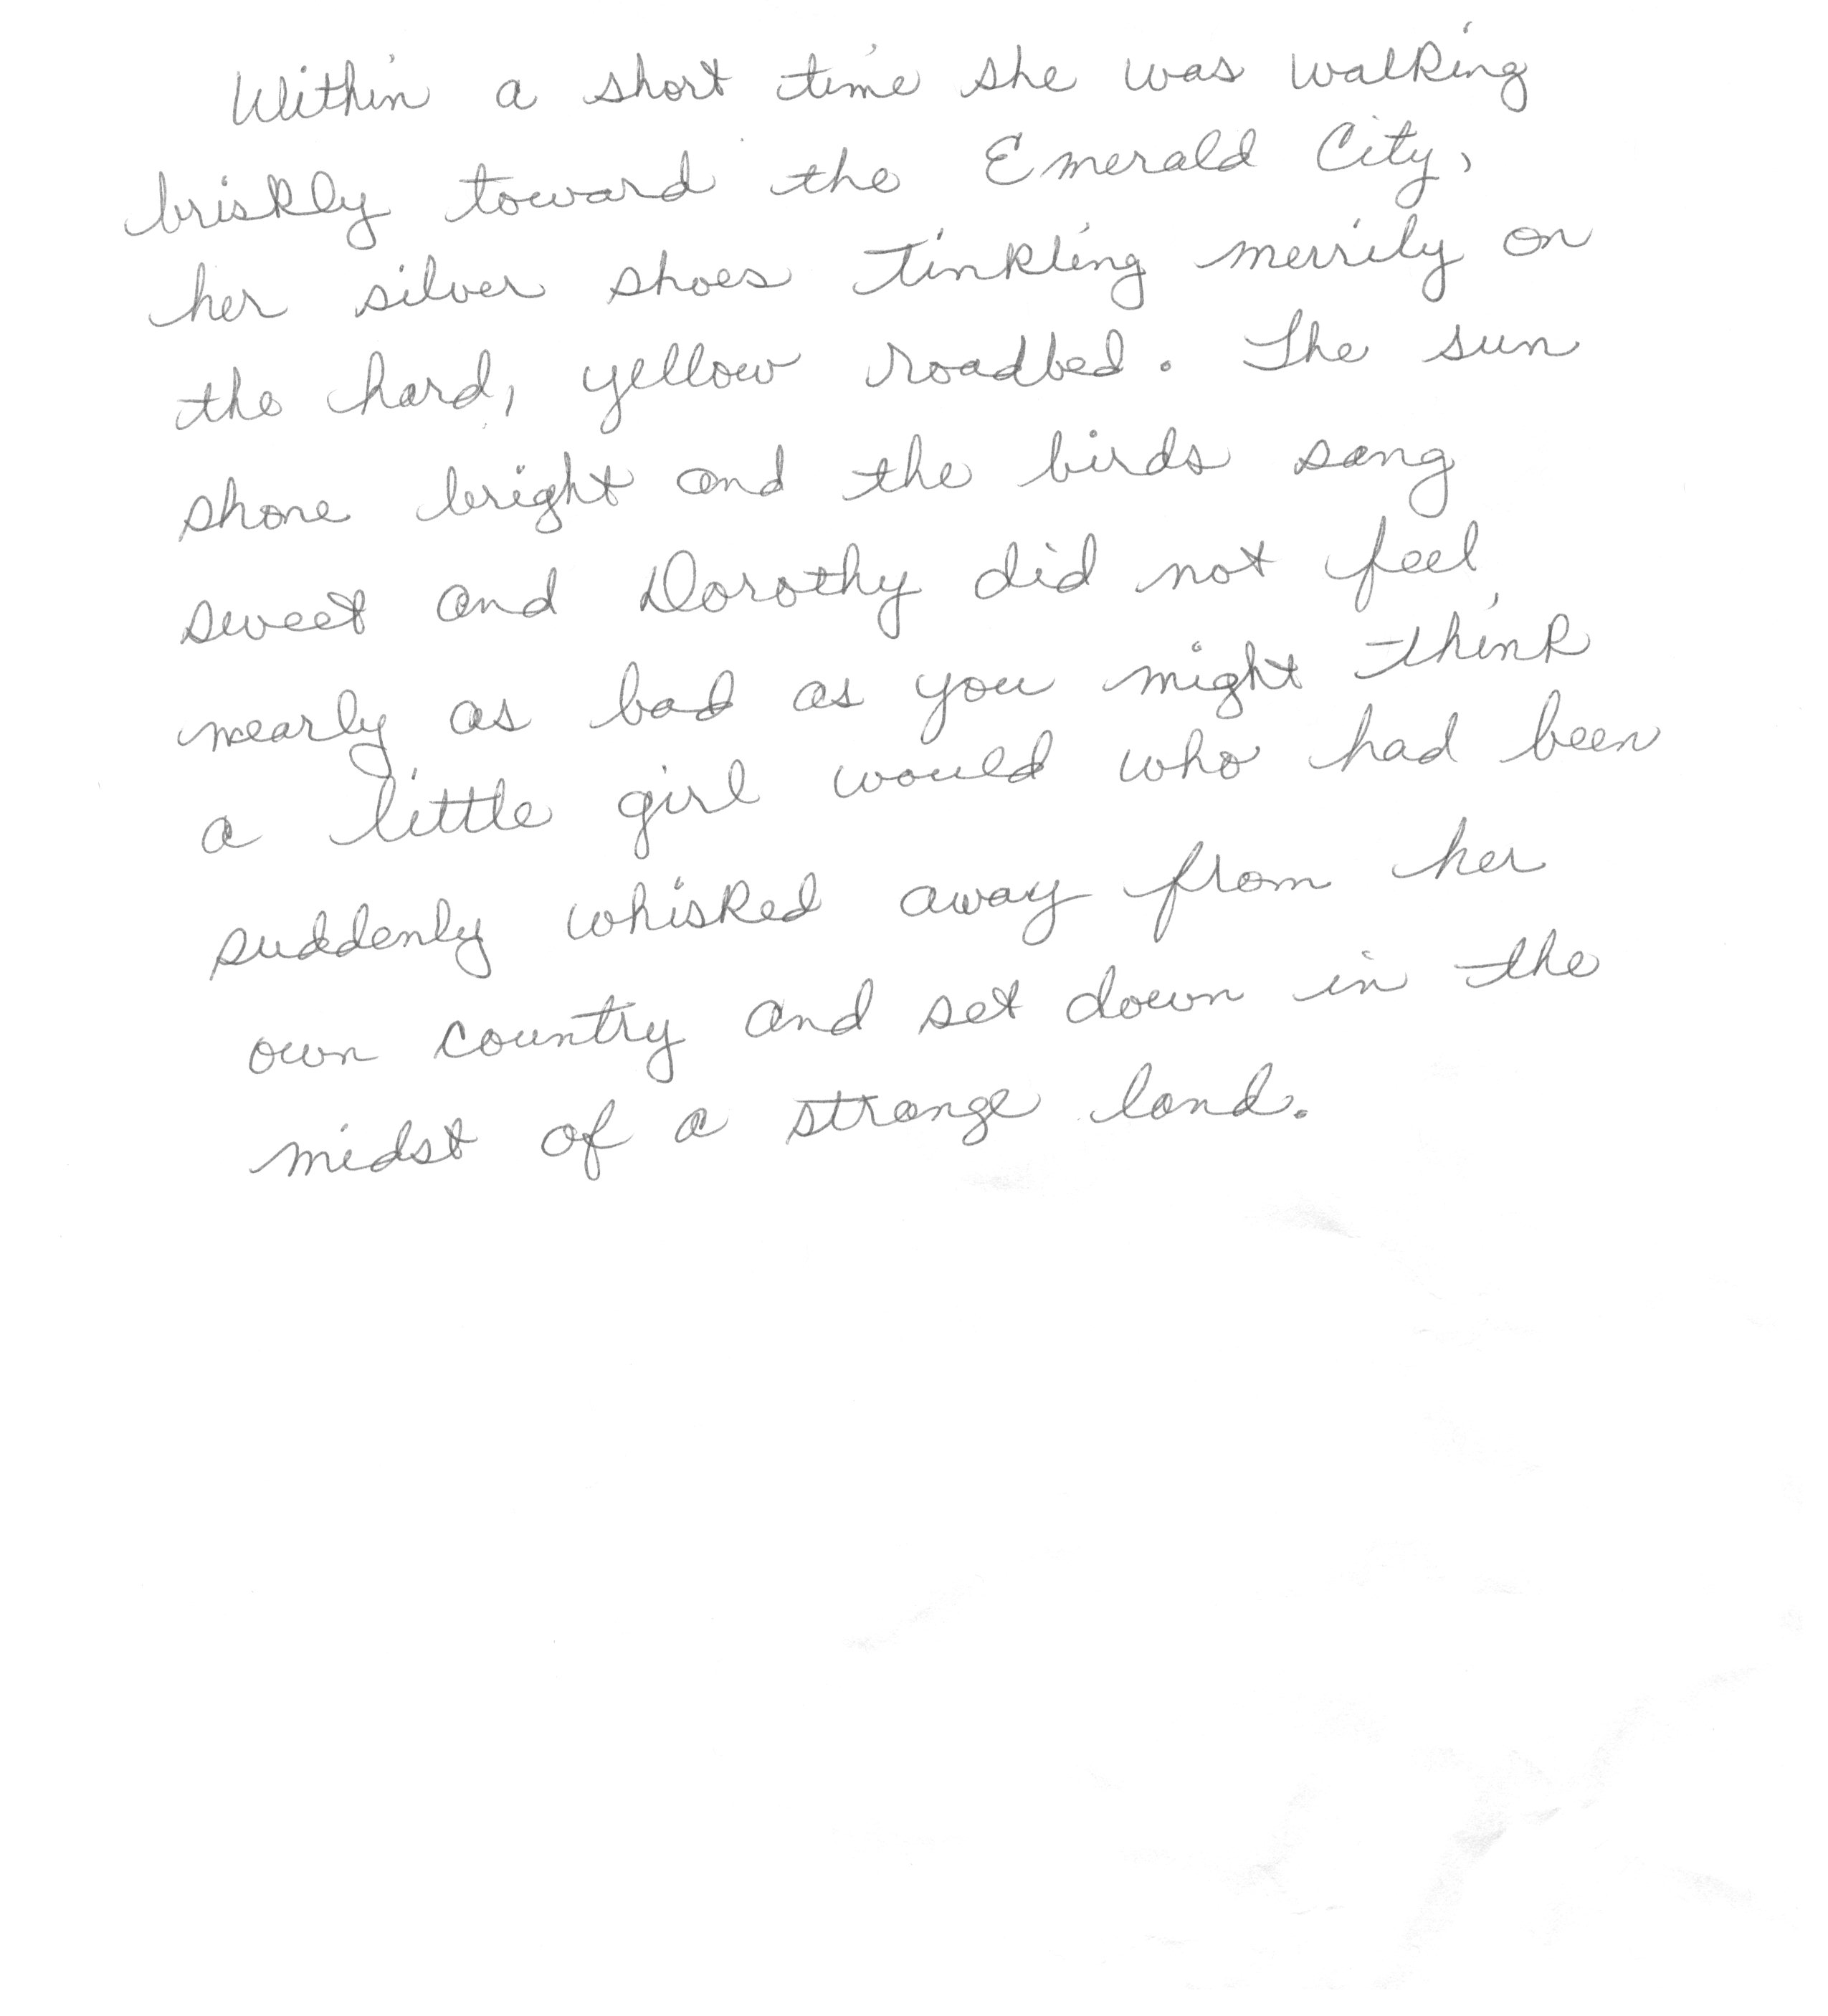 Within a short time she was walking
briskly toward the Emerald City,
her silver shoes tinkling merrily on
the hard, yellow roadbed. The sun
shone bright and the birds sang
sweet and Dorothy did not feel
nearly as bad as you might think
a little girl would who had been
suddenly whisked away from her
own country and set down in the
midst of a strange land.